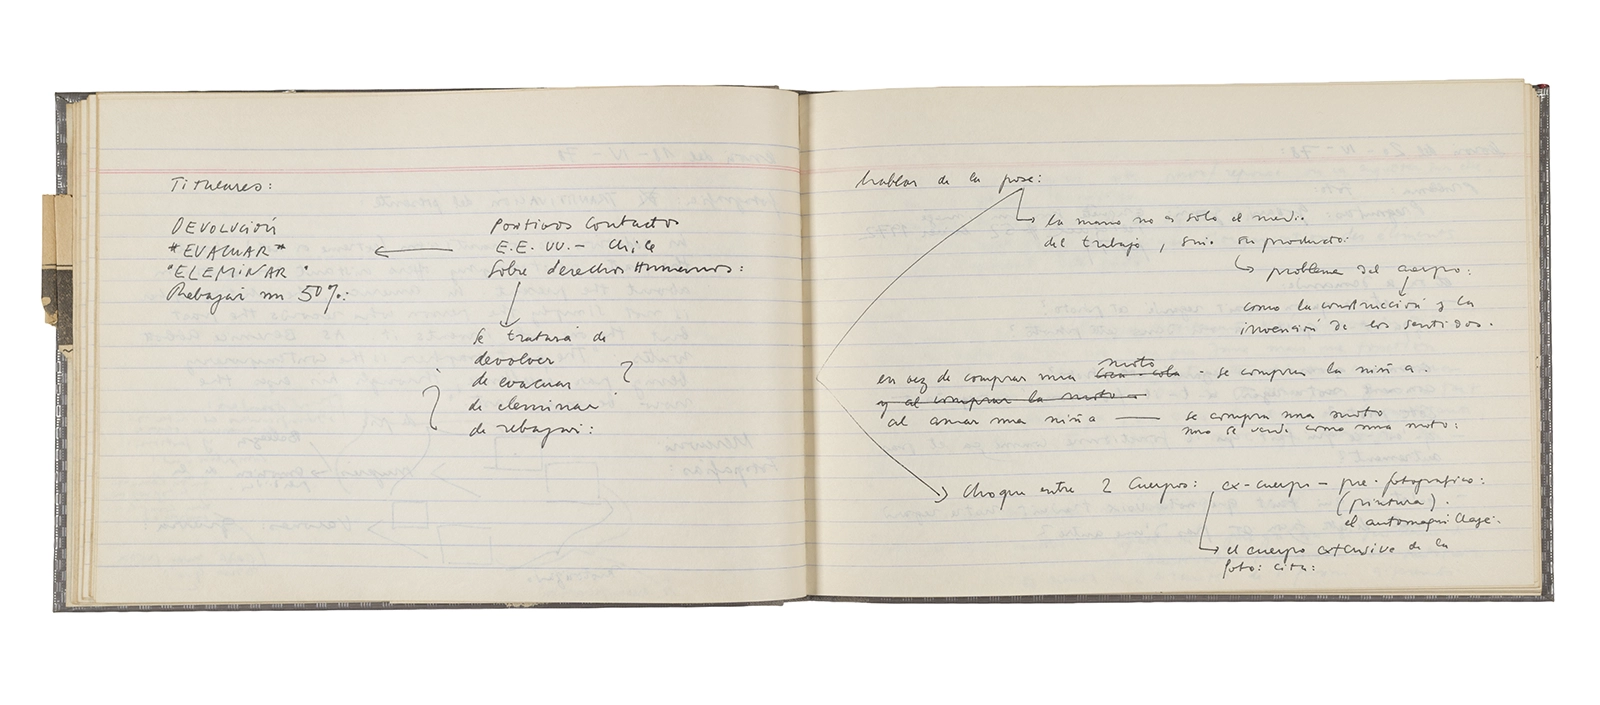 Titulares:
DEVOLUCIÓN
"EVACUAR"
"ELEMINAR"
Rebajar un 50%:
Positivos Contactos
E.E. UU. - Chile
Sobre derechos Humanos:
Se tratará de
devolver
de evacuar
de eleminar
de rebajar:
hablar de la pose:
la mano no es solo el medio
del trabajo, sino su producto:
problema del cuerpo:
como la construcción y la
invención de los sentidos.
moto
en vez de comprar una coca-cola - se compra la niña.
y al comprar la moto -
al amar una niña — se compra una moto
uno se vende como una moto:
Choque entre 2 Cuerpos: ex-cuerpo - pre-fotografico:
(pintura).
el automaquillaje:
el cuerpo extensivo de la
foto: cita: